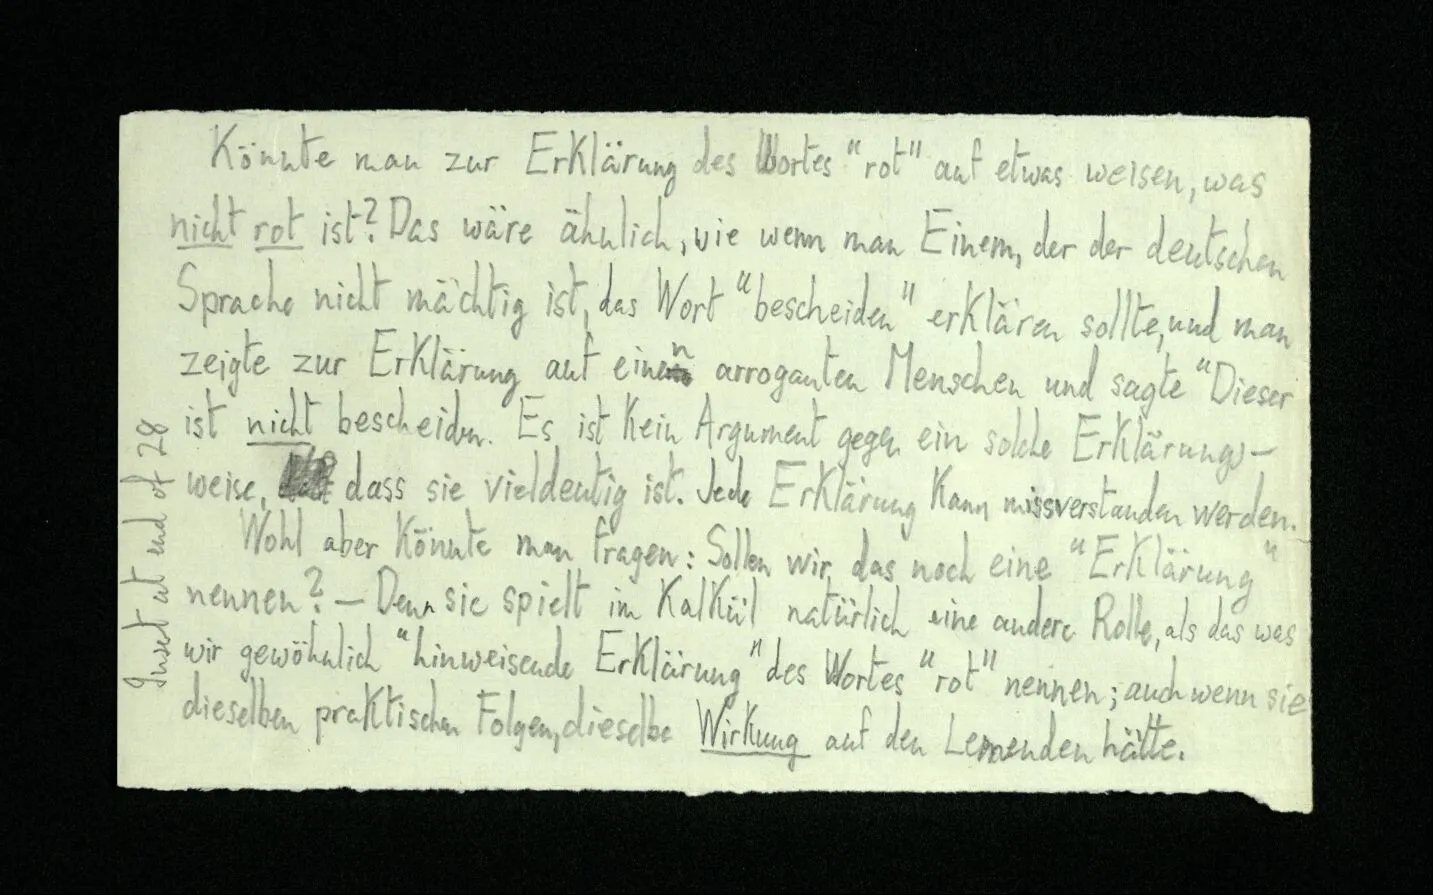 Könnte man zur Erklärung des Wortes "rot" auf etwas weisen, was
nicht rot ist? Das wäre ähnlich, wie wenn man Einem, der der deutschen
Sprache nicht mächtig ist, das Wort "bescheiden" erklären sollte, und man
zeigte zur Erklärung auf einen arroganten Menschen und sagte "Dieser
ist nicht bescheiden. Es ist kein Argument gegen ein solche Erklärungs-
weise, dass sie vieldeutig ist. Jede Erklärung kann missverstanden werden.
Wohl aber könnte man fragen: Sollen wir das noch eine "Erklärung"
nennen? — Denn sie spielt im Kalkül natürlich eine andere Rolle, als das was
wir gewöhnlich "hinweisende Erklärung" des Wortes "rot" nennen; auch wenn sie
dieselben praktischen Folgen, dieselbe Wirkung auf den Lernenden hätte.
Insert at end of 28